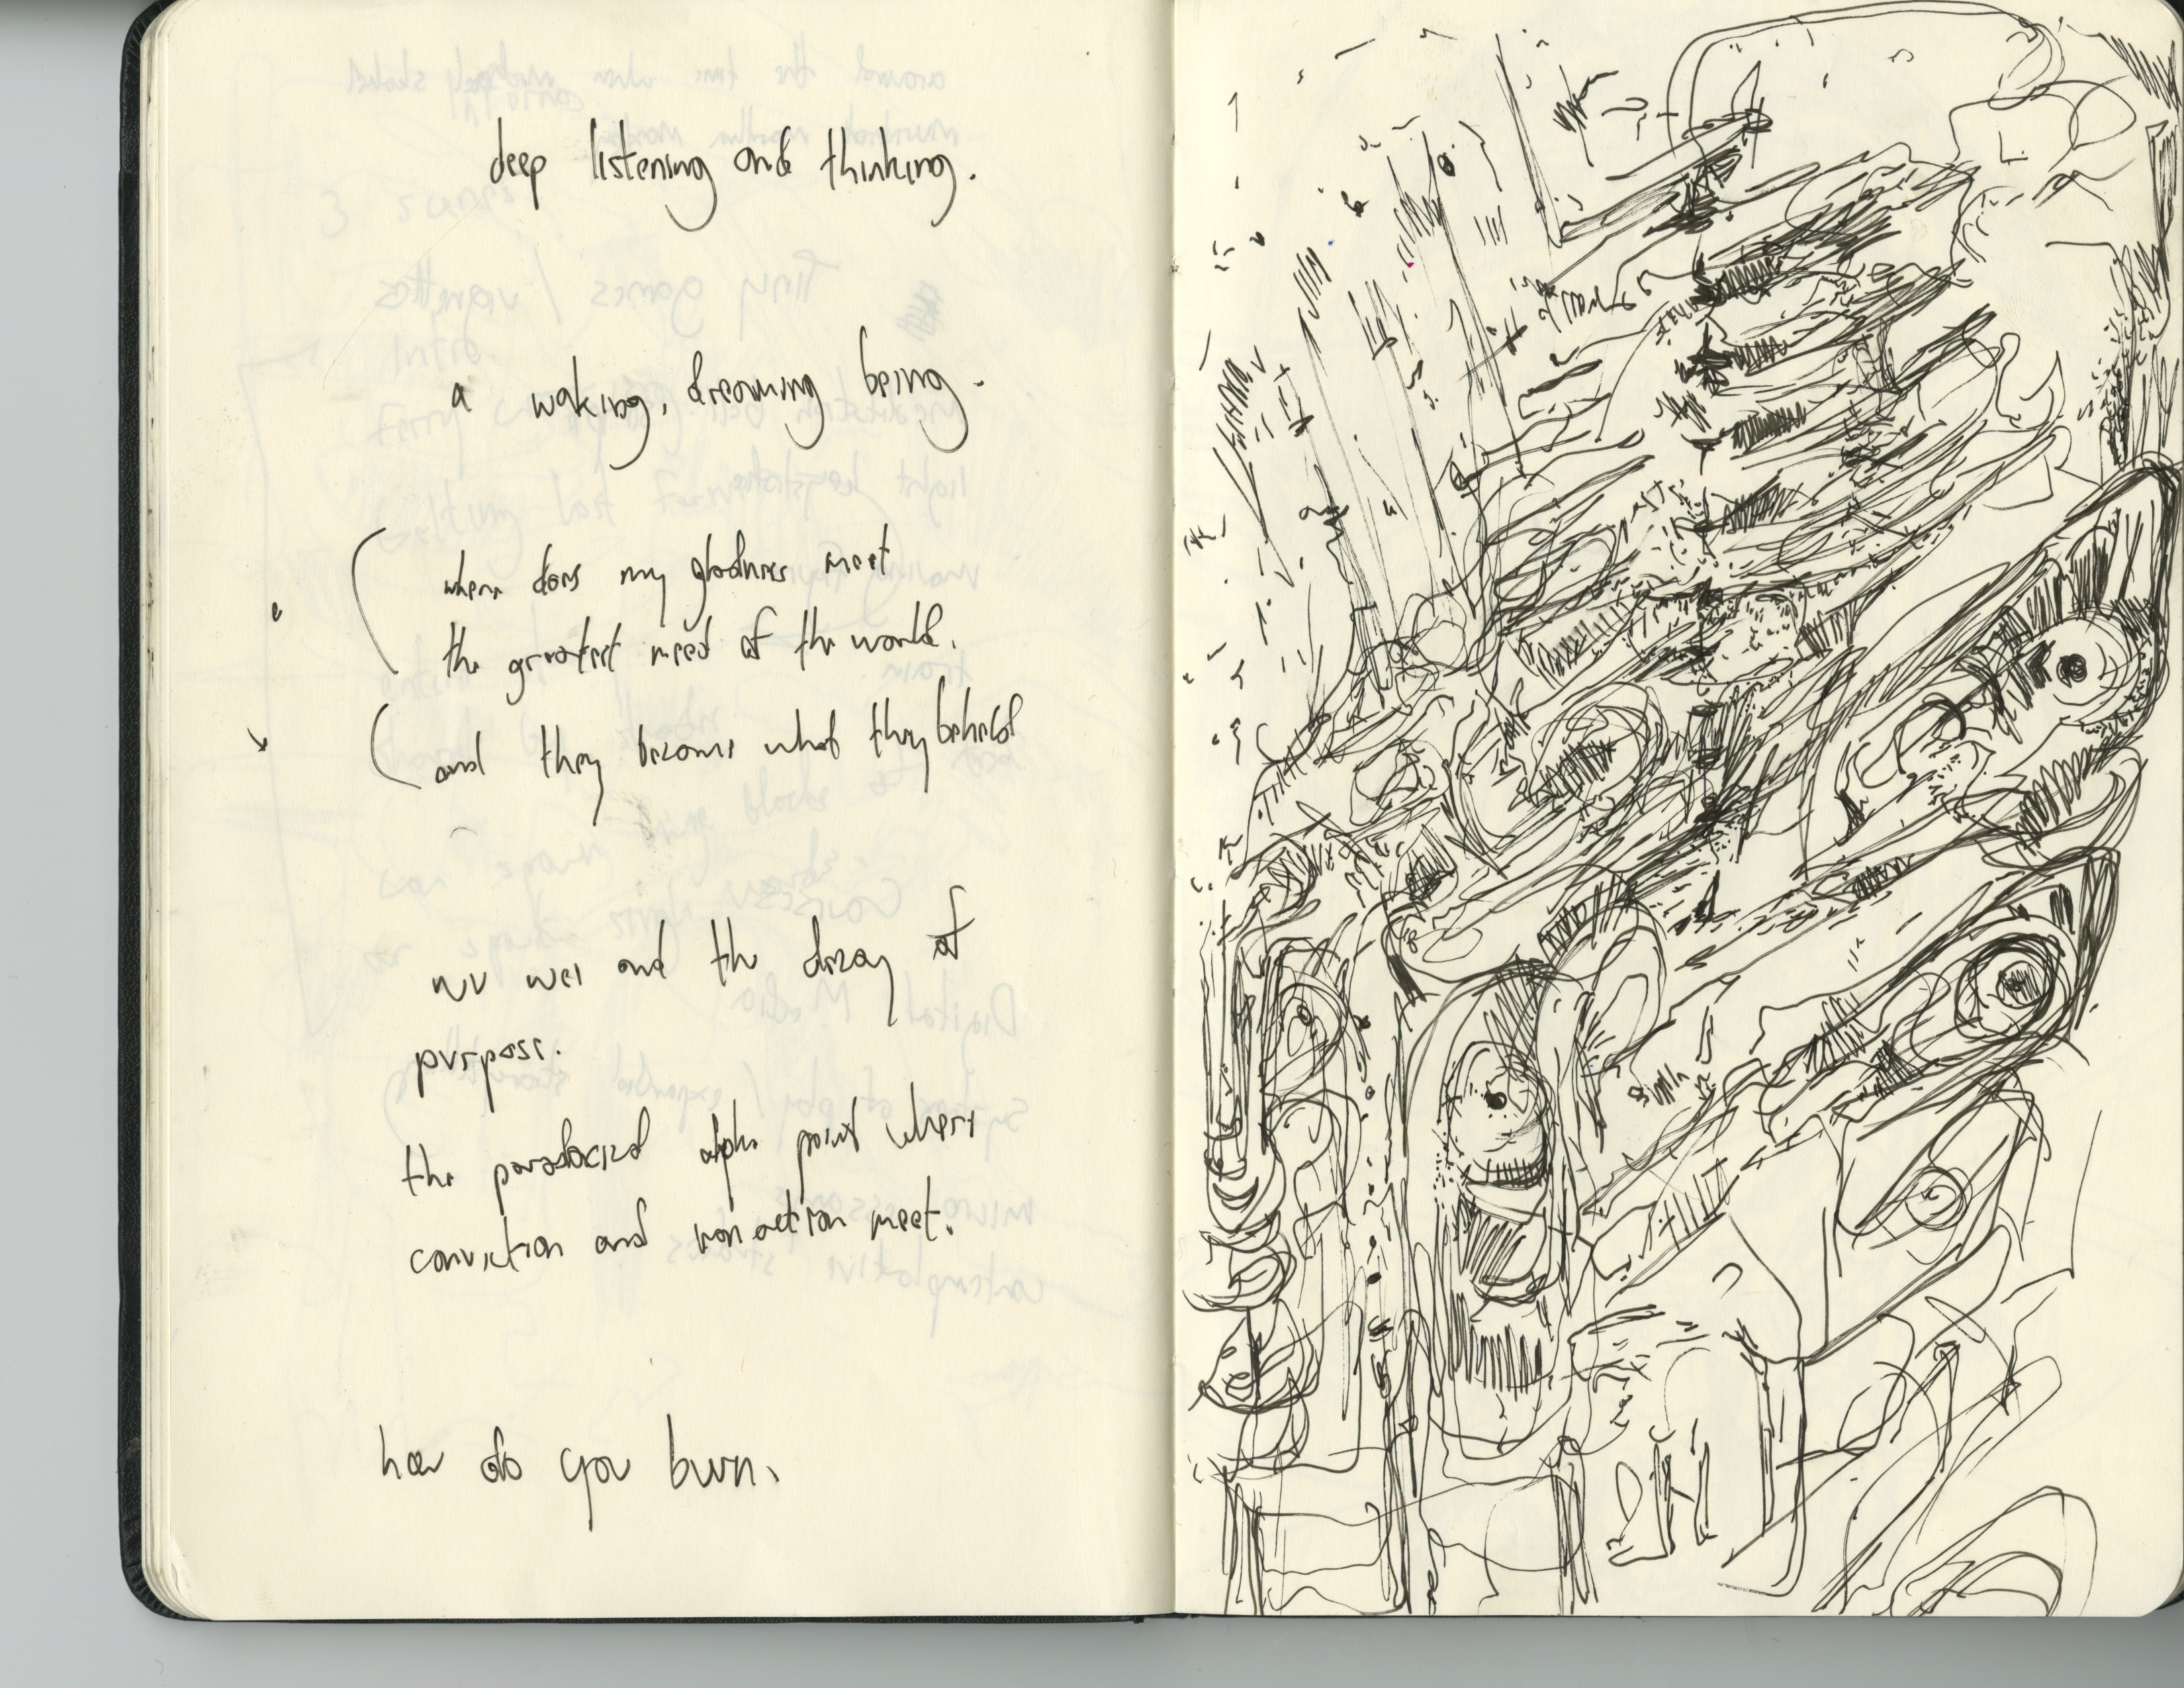 deep listening and thinking.
a waking, dreaming being.
where does my gladness meet
the greatest need of the world.
and they become what they behold
wu wei and the decay of
purpose.
the paradoxical alpha point where
conviction and non action meet.
how do you burn.